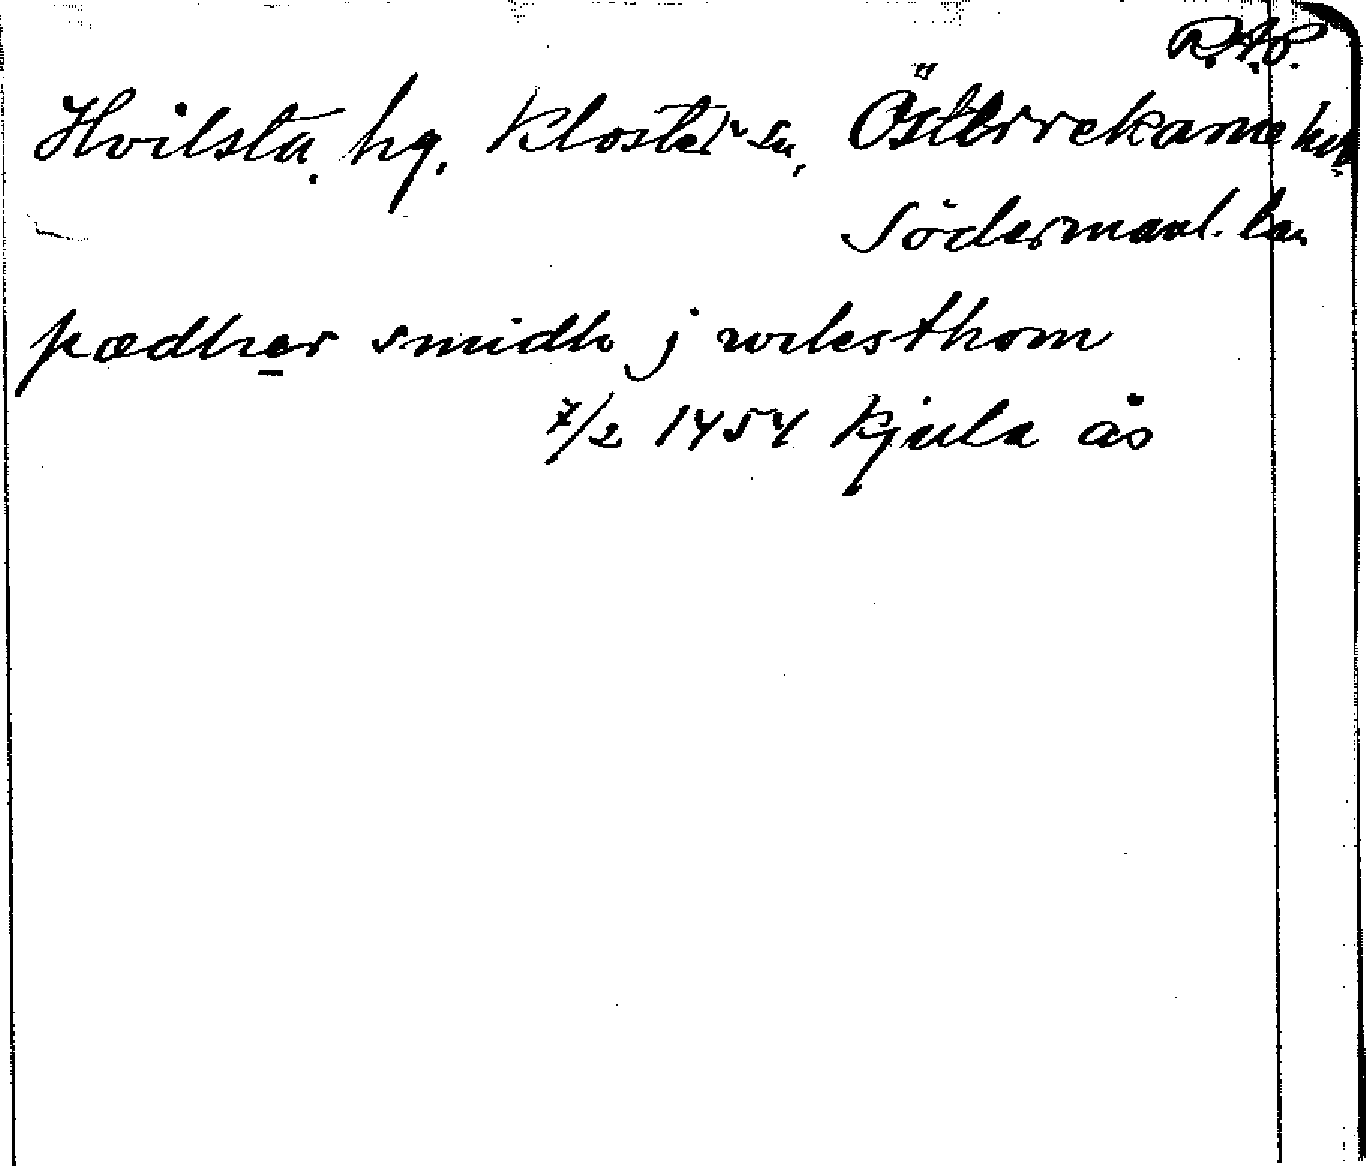 R.A.P.
Hvilsta, hg, Kloster sn, Österrekarne hd
Södermanl. län
pædher smidh j wilesthom
7/2 1454 Kjula ås